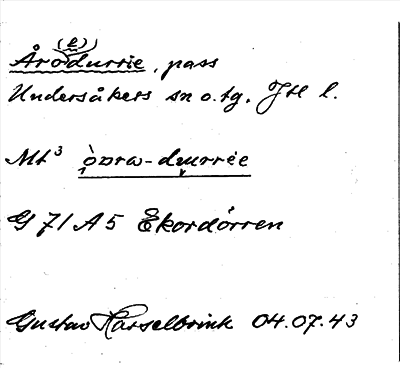 (e)
Årodurrie, pass
Undersåkers sn o. tg. JH l.
Mt³ òvra-durrëe
G 71 A 5 Ekordörren
Gustav Hasselbrink 04.07.43